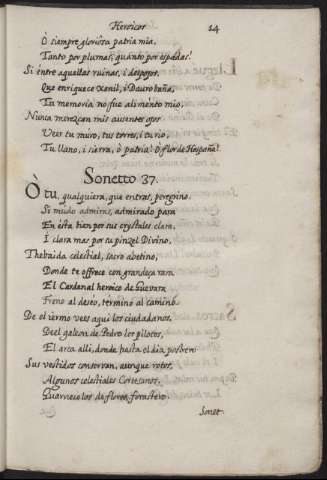 Heroicos 14
Ò siempre gloriosa patria mia,
Tanto por plumas, quanto por espadas!
Si entre aquellas ruinas, i despojos,
Que enriquece Genil, i Dauro baña,
Tu memoria no fue alimento mio,
Nunca merezcan mis ausentes ojos
Veer tu muro, tus torres, i tu rio,
Tu llano, i sierra, ò patria! ò flor de Hespaña!
Sonetto 37.
Ò tu, qualquiera, que entras, peregrino,
Si mudo admiras, admirado para
En esta bien por sus crystales clara,
I clara mas por su pinzel Divino,
Thebaida celestial, sacro abetino,
Donde te offrece con grandeza rara
El Cardenal heroico de Guevara
Freno al deseo, termino al camino.
De el iermo vees aqui los ciudadanos,
De el galeon de Pedro los pilotos,
El arca alli, donde hasta el dia postrero
Sus vestidos conservan, aunque rotos,
Algunos celestiales Cortesanos.
Guarnecelos de flores forastero.
Sonet.